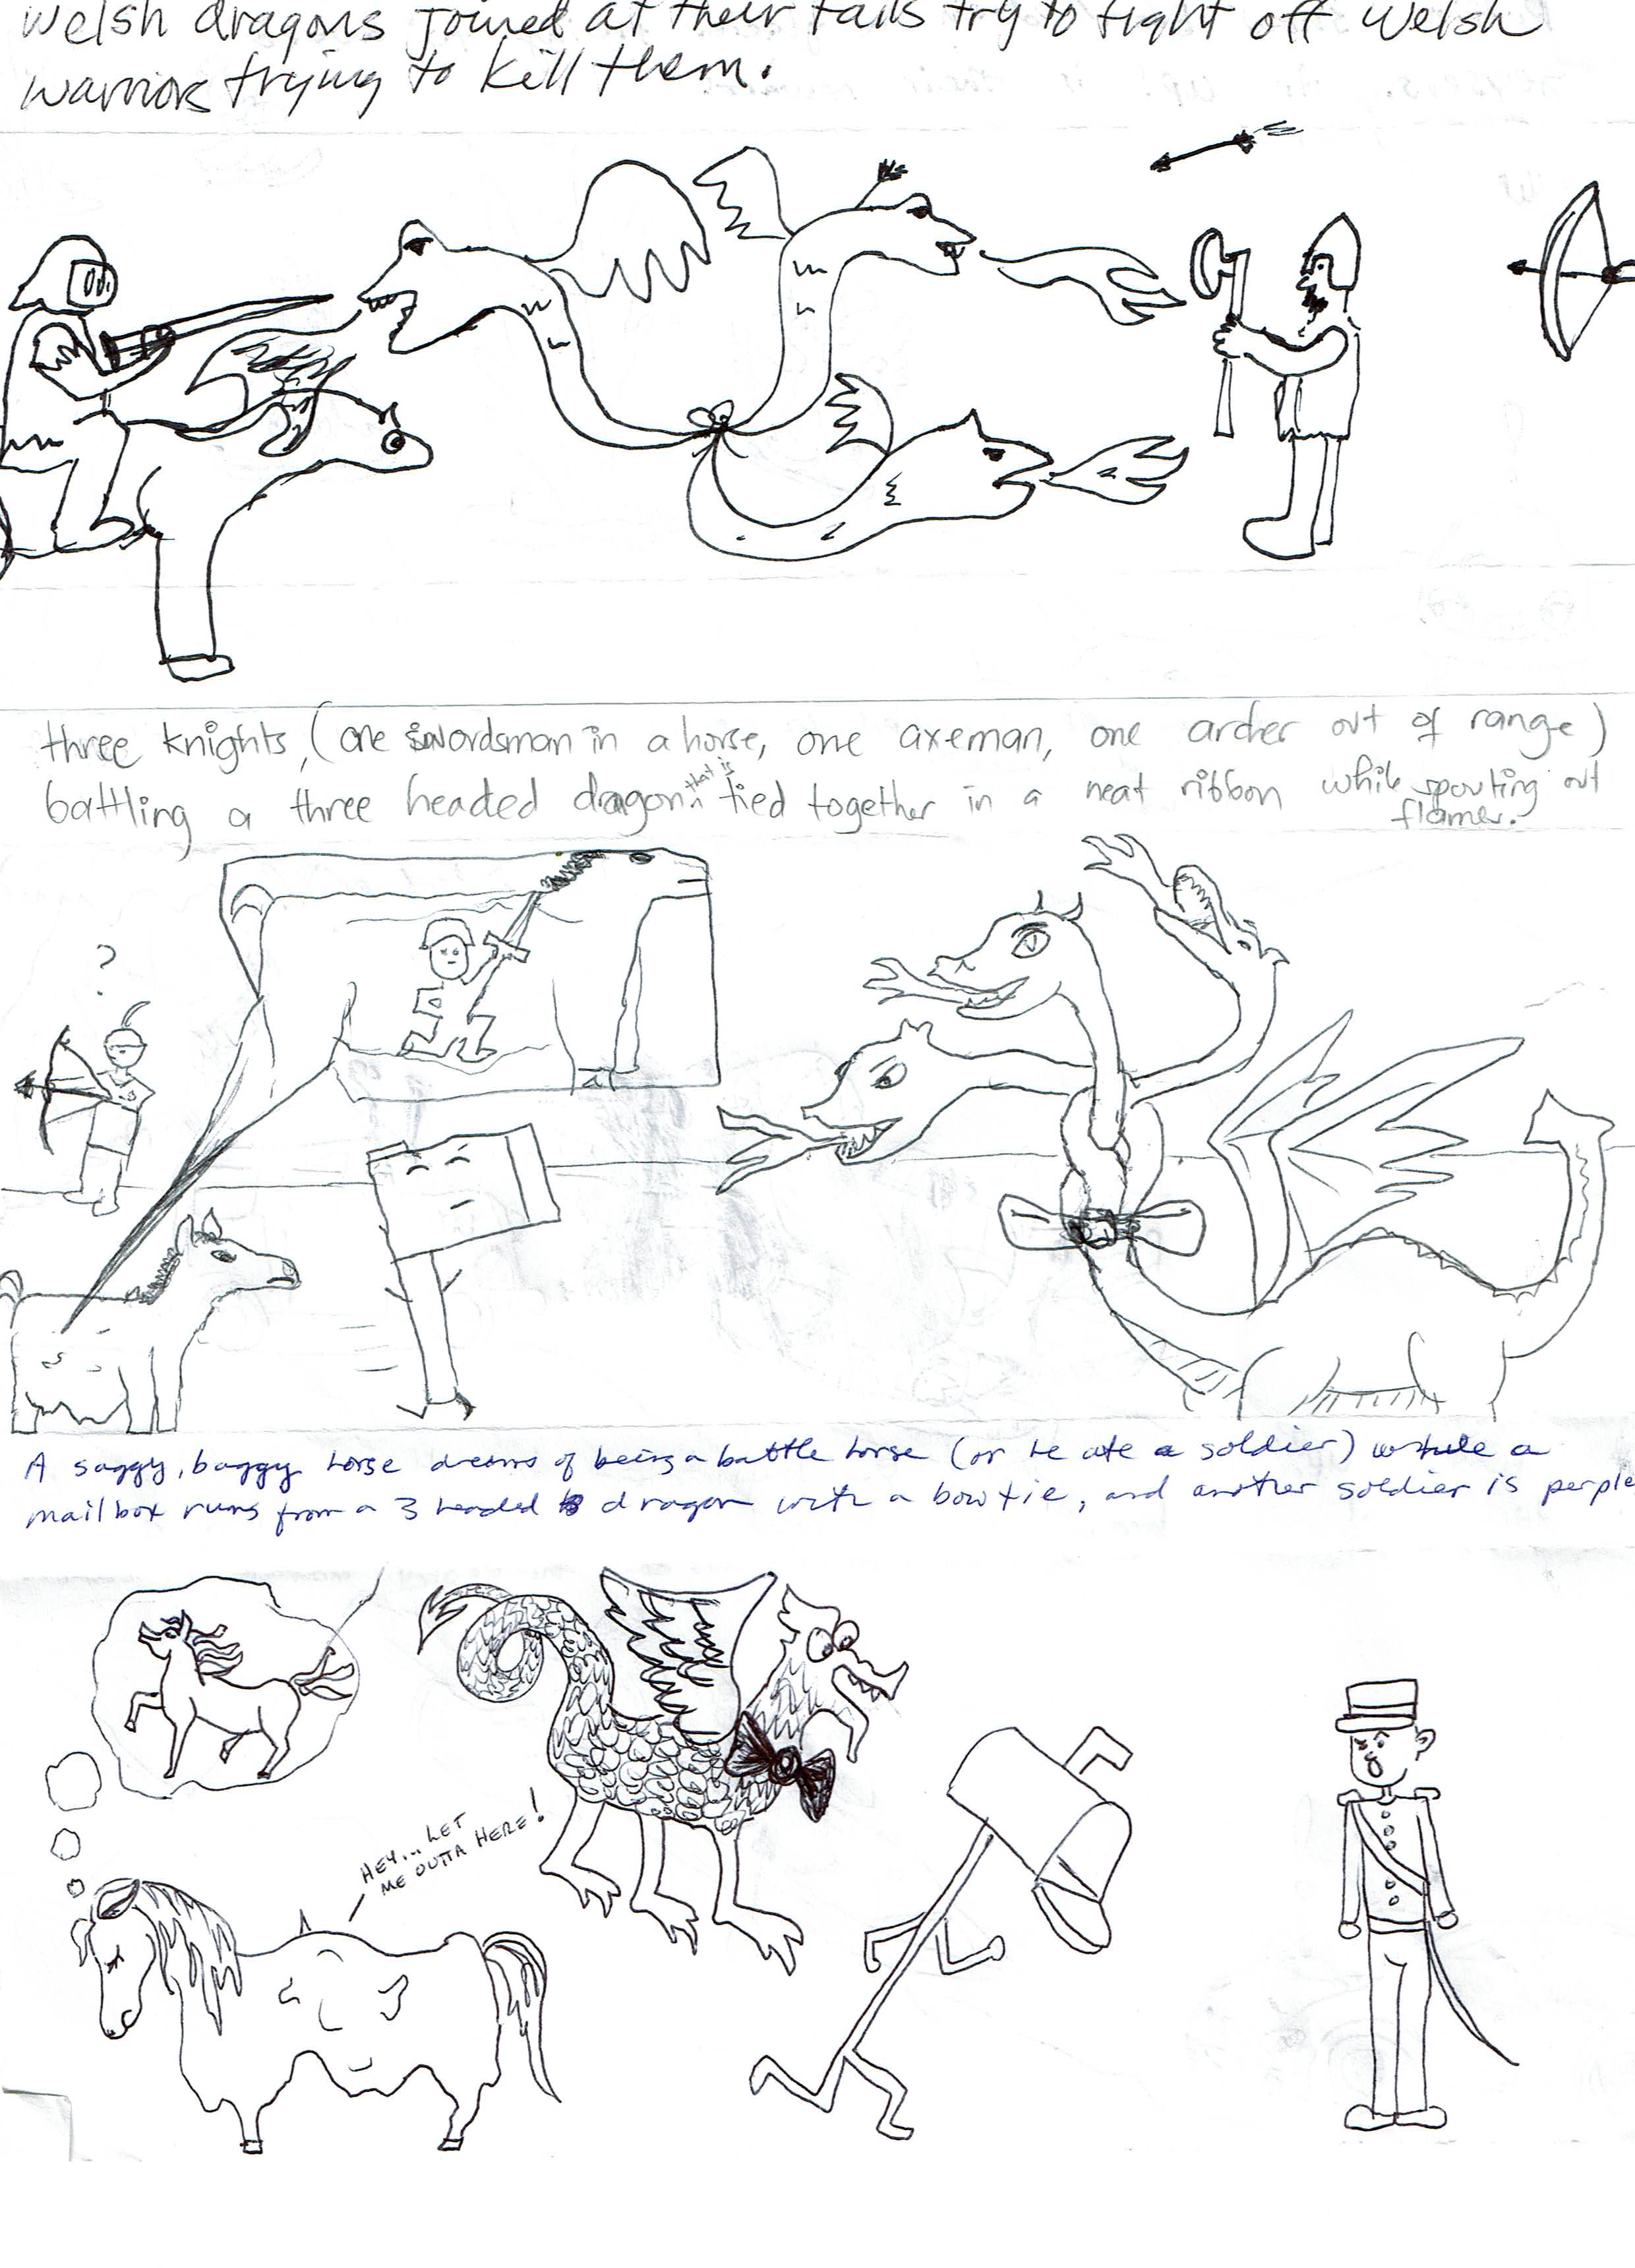 Welsh dragons joined at their tails try to fight off Welsh
warriors trying to kill them.
three knights, (one swordsman in a horse, one axeman, one archer out of range)
battling a three headed dragon that is tied together in a neat ribbon while spouting out
flames.
?
A saggy, baggy horse dreams of being a battle horse (or he ate a soldier) while a
mailbox runs from a 3 headed dragon with a bow tie, and another soldier is perple
HEY... LET
ME OUTTA HERE!